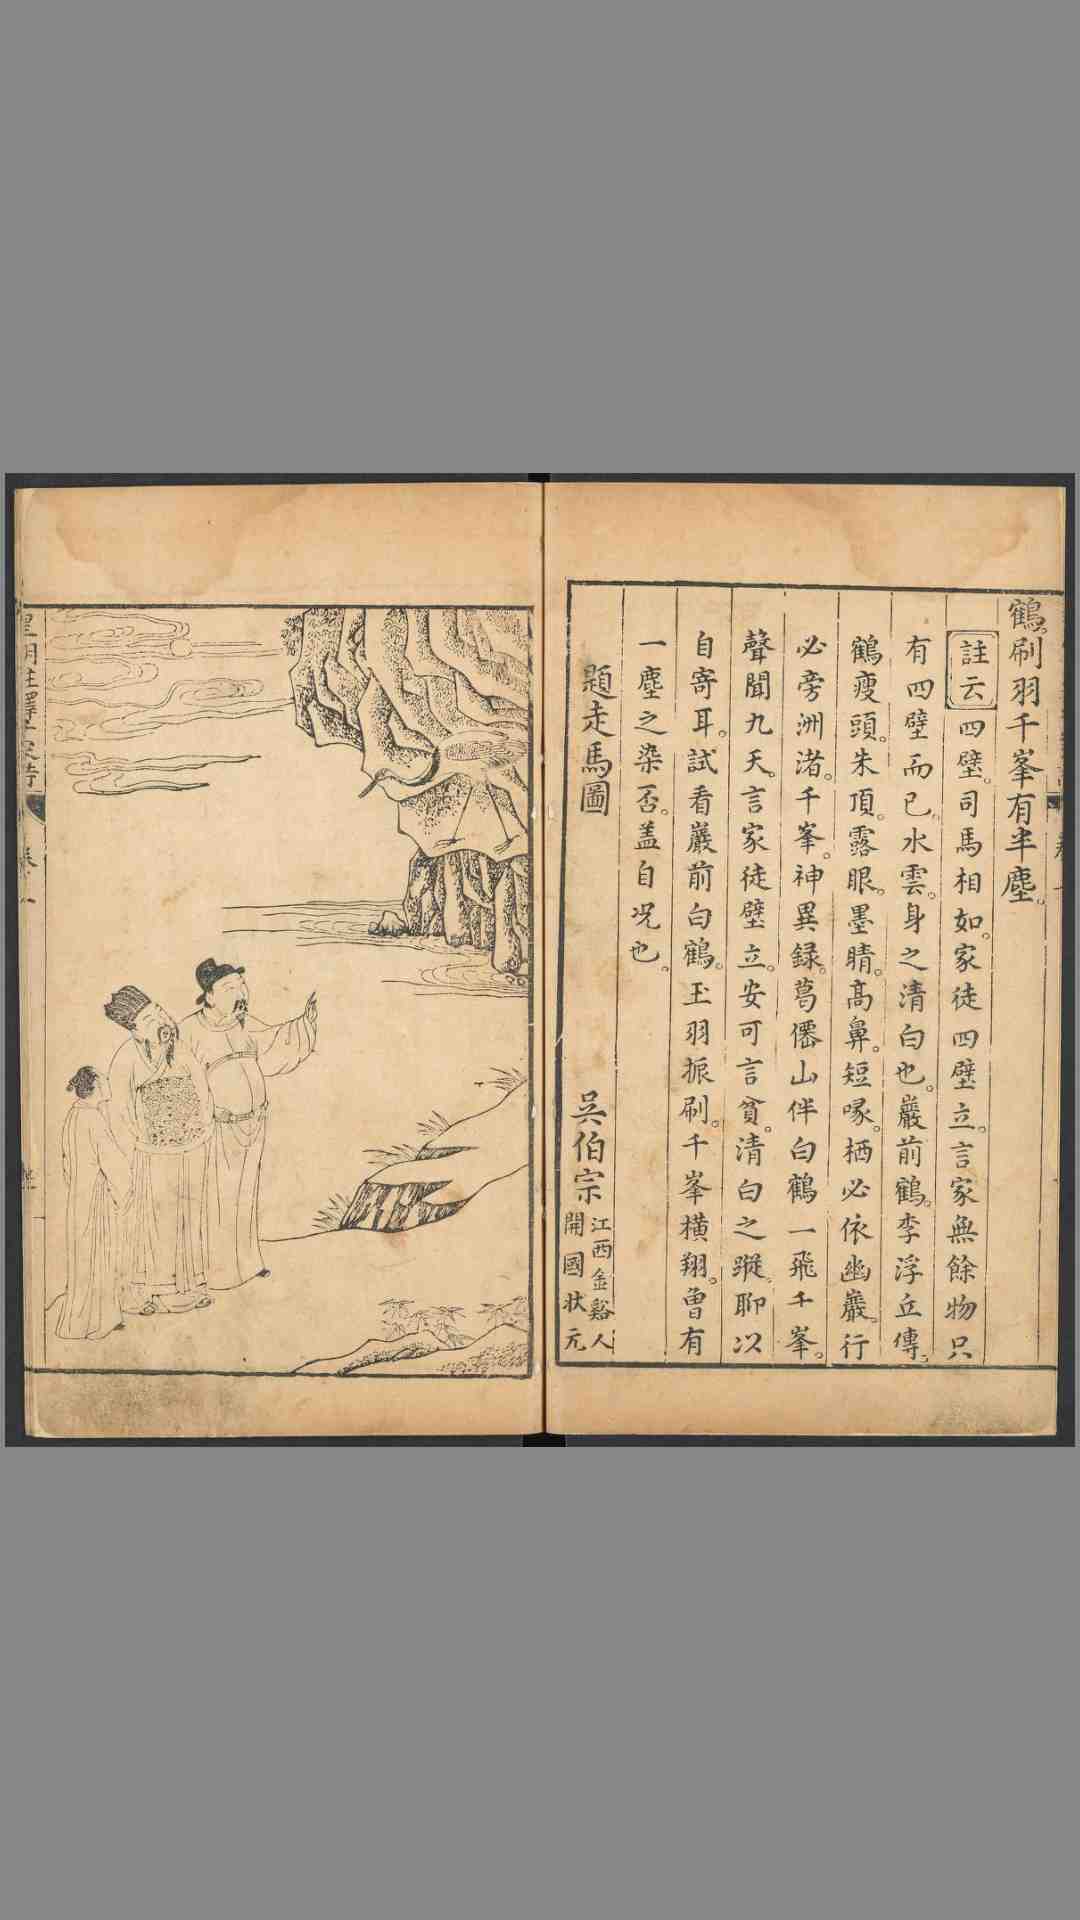 鶴。刷羽千峯有半塵。
註云四壁。司馬相如。家徒四壁立。言家無餘物只
有四壁而已。水雲。身之清白也。巖前鶴。李浮丘傳。
鶴瘦頭。朱頂。露眼。墨睛。高鼻。短喙。栖必依幽巖。行
必旁洲渚。千峯。神異録。葛僊山伴白鶴一飛千峯。
聲聞九天。言家徒壁立。安可言貧。清白之蹤。聊以
自寄耳。試看巖前白鶴。玉羽振刷。千峯橫翔。曾有
一塵之染否。盖自況也。
題走馬圖
吳伯宗
江西金谿人
開國狀元